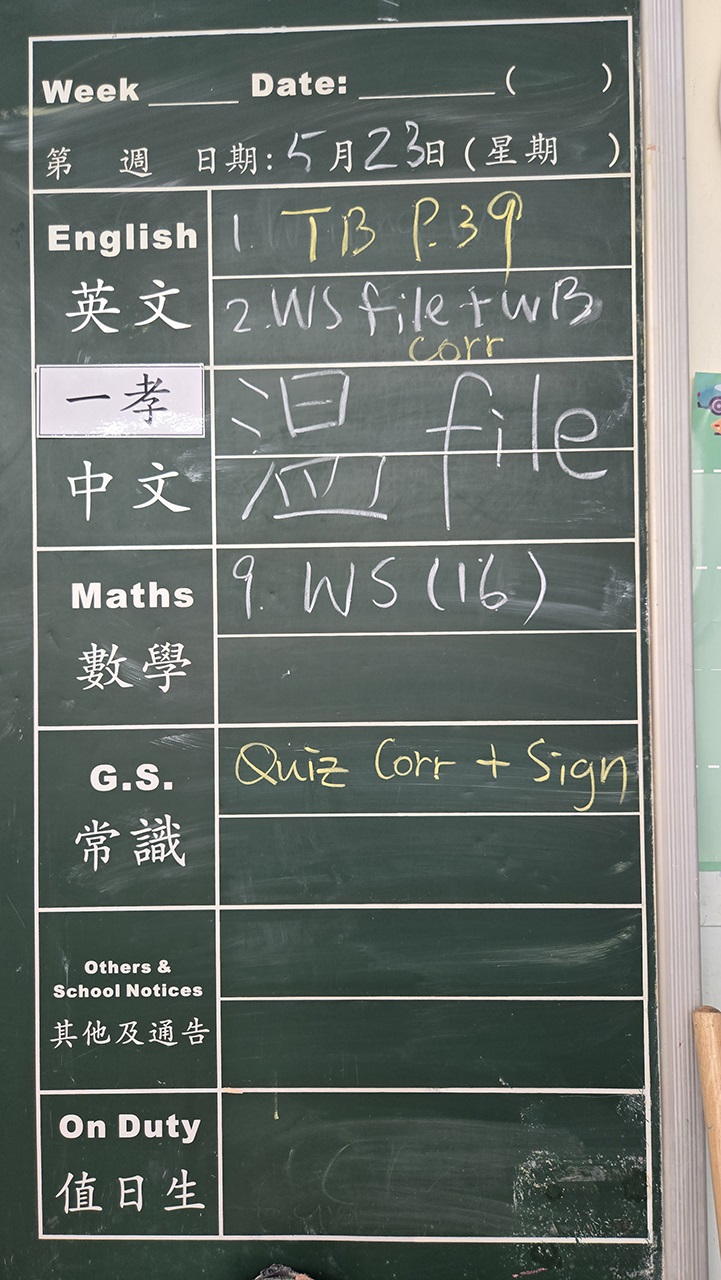 Week Date: ( )
第 週 日期: 5月23日 (星期 )
English 1. TB P.39
英文 2. WS file + WB
corr
一孝 温 file
中文
Maths 9. WS (16)
數學
G.S. Quiz Corr + Sign
常識
Others &
School Notices
其他及通告
On Duty
值日生